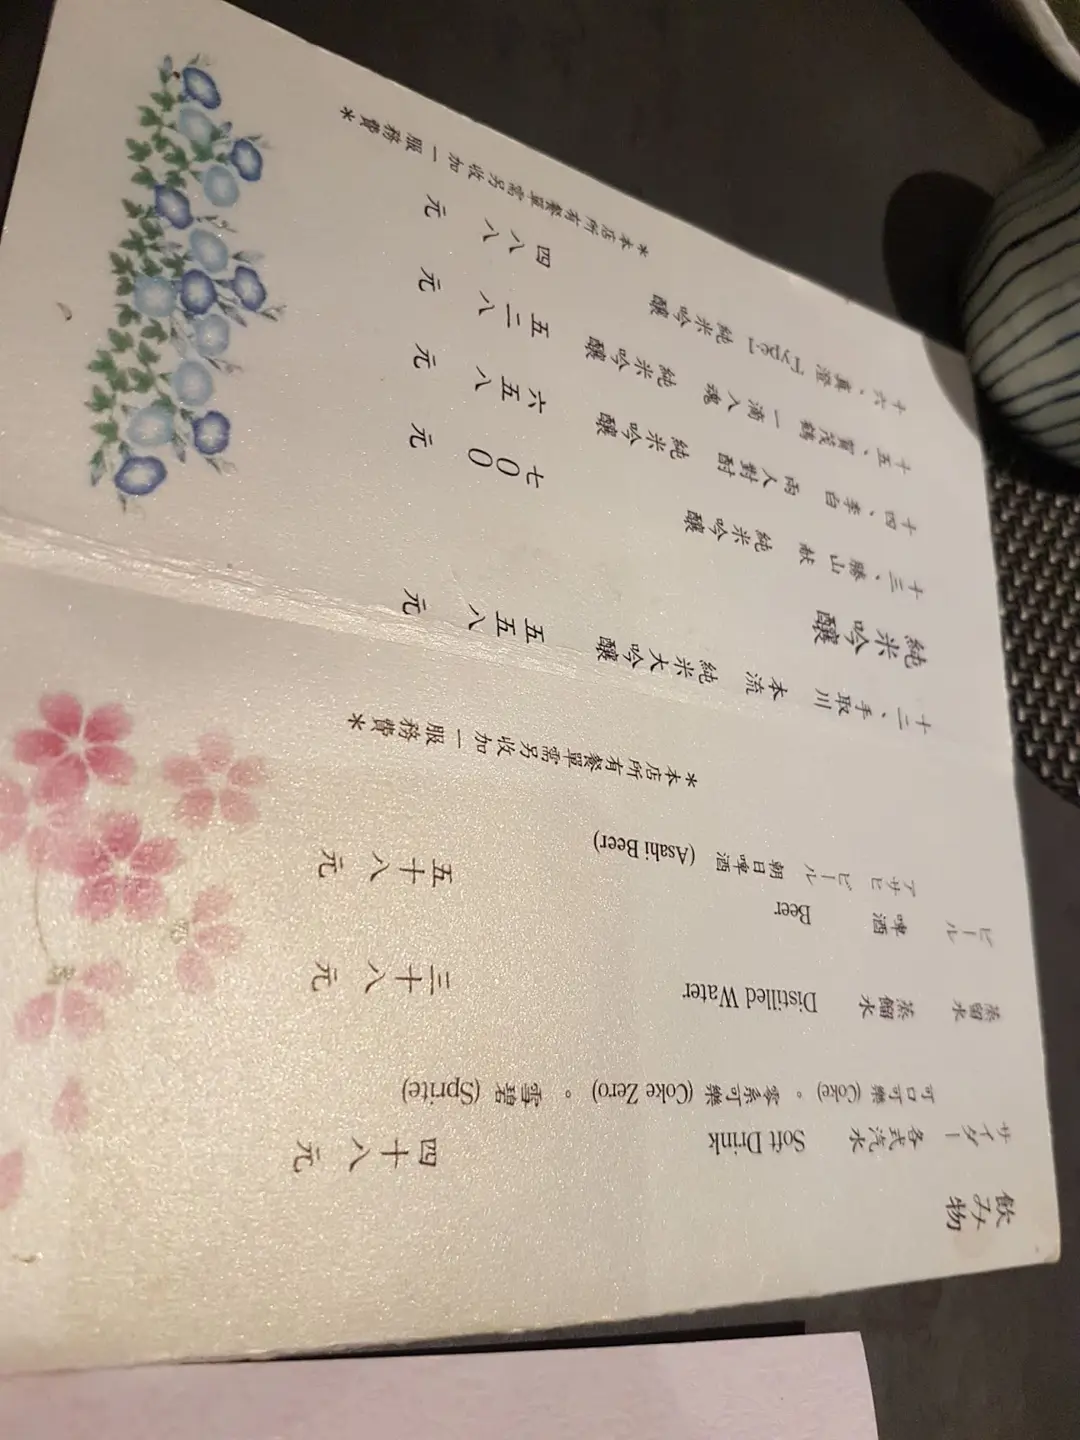 飲み物
サイダー 各式汽水 Soft Drink 四十八元
可口可樂 (Coke) 。 零系可樂 (Coke Zero) 。 雪碧 (Sprite)
蒸留水 蒸餾水 Distilled Water 三十八元
ビール 啤酒 Beer
アサヒ ビール 朝日啤酒 (Asahi Beer) 五十八元
＊本店所有餐單需另收加一服務費＊
十二、手取川 本流 純米大吟釀 五五八元
純米吟釀
十三、勝山 献 純米吟釀 七〇〇元
十四、李白 両人對酌 純米吟釀 六五八元
十五、賀茂鶴 一滴入魂 純米吟釀 五二八元
十六、真澄 Type-1 純米吟釀 四八八元
＊本店所有餐單需另收加一服務費＊